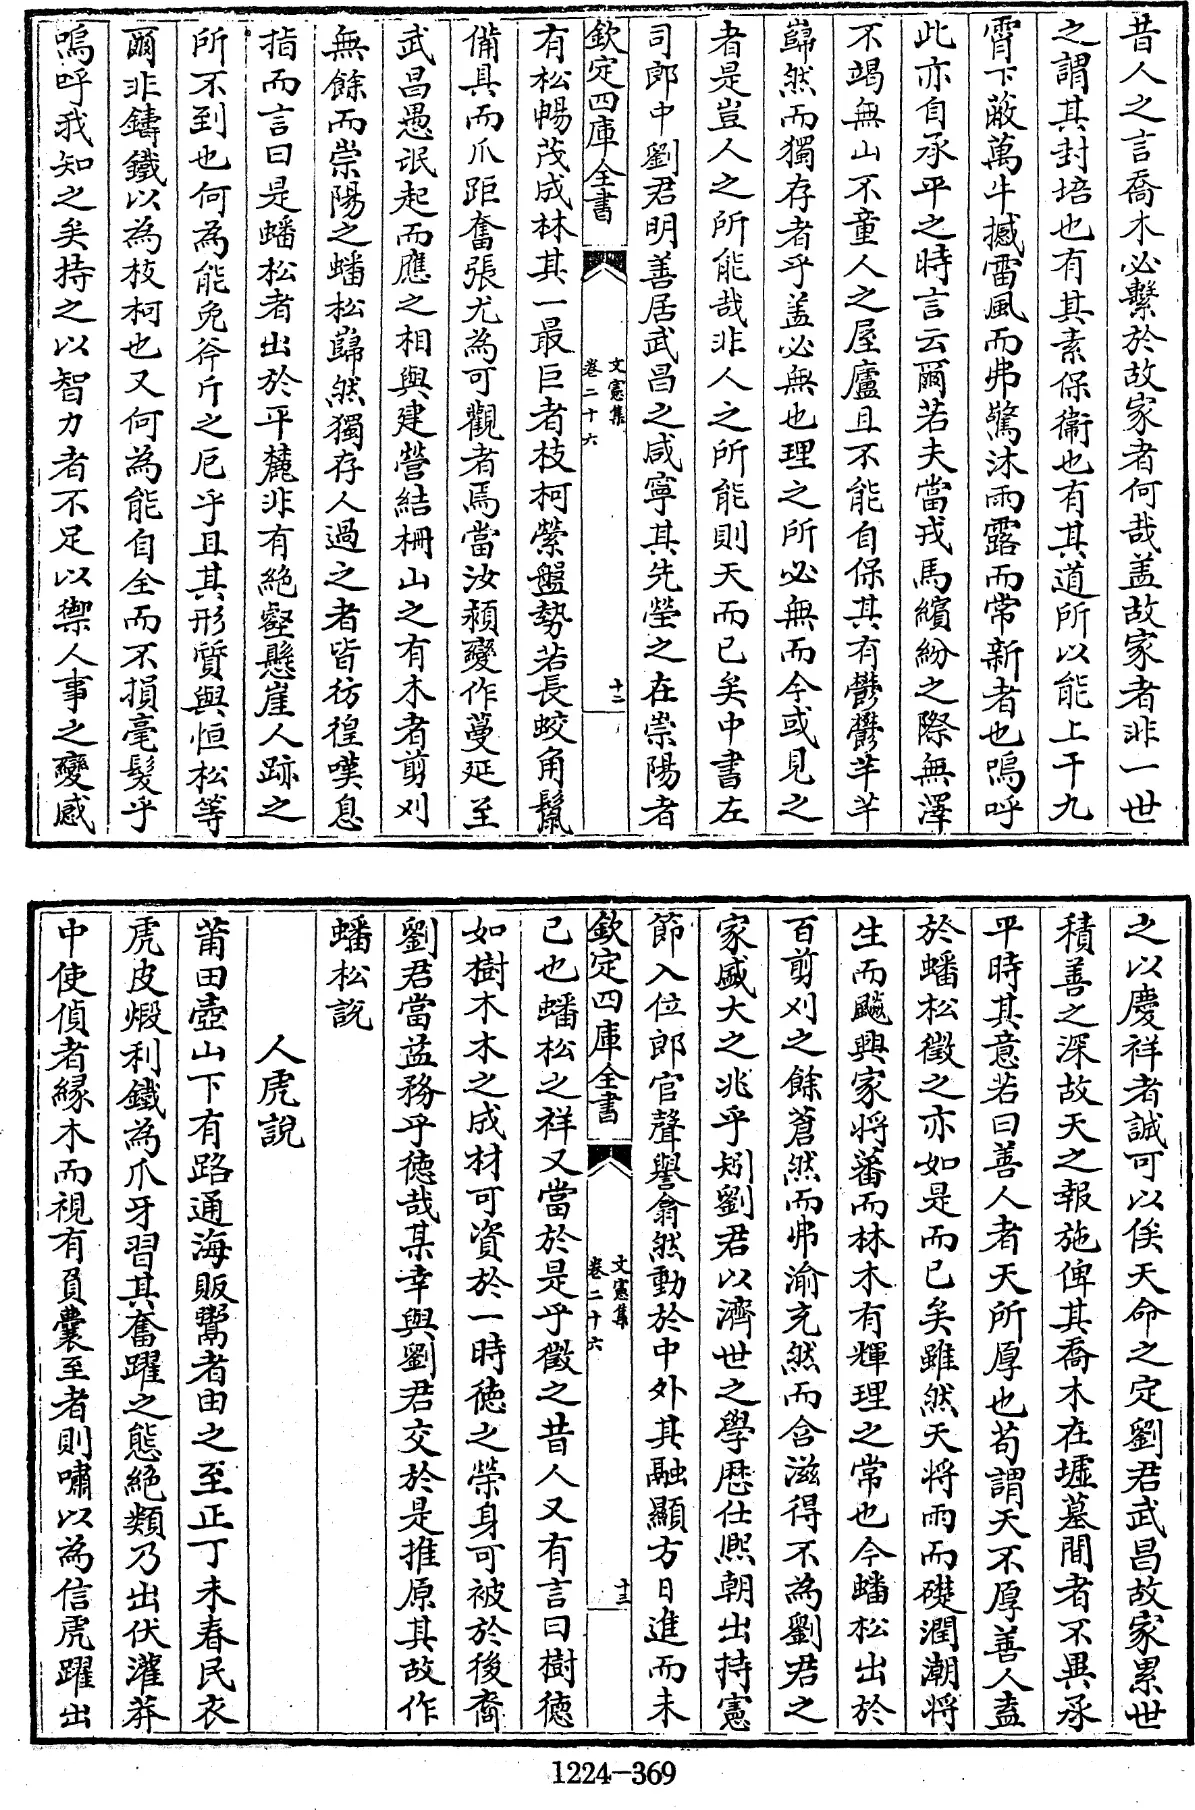 昔人之言喬木必繫於故家者何哉盖故家者非一世
之謂其封培也有其素保衞也有其道所以能上干九
霄下蔽萬牛撼雷風而弗驚沐雨露而常新者也嗚呼
此亦自承平之時言云爾若夫當戎馬繽紛之際無澤
不竭無山不童人之屋廬且不能自保其有鬱鬱芊芊
巋然而獨存者乎盖必無也理之所必無而今或見之
者是豈人之所能哉非人之所能則天而已矣中書左
司郎中劉君明善居武昌之咸寧其先塋之在崇陽者
欽定四庫全書
文憲集
卷二十六
十二
有松暢茂成林其一最巨者枝柯縈盤勢若長蛟角鬛
備具而爪距奮張尤為可觀者焉當汝潁變作蔓延至
武昌愚氓起而應之相與建營結柵山之有木者剪刈
無餘而崇陽之蟠松巋然獨存人過之者皆彷徨嘆息
指而言曰是蟠松者出於平麓非有絶壑懸崖人跡之
所不到也何為能免斧斤之厄乎且其形質與恒松等
爾非鑄鐵以為枝柯也又何為能自全而不損毫髮乎
嗚呼我知之矣持之以智力者不足以禦人事之變感
之以慶祥者誠可以俟天命之定劉君武昌故家累世
積善之深故天之報施俾其喬木在墟墓間者不異承
平時其意若曰善人者天所厚也苟謂天不厚善人盍
於蟠松徵之亦如是而已矣雖然天將雨而礎潤潮將
生而颷興家將蕃而林木有輝理之常也今蟠松出於
百剪刈之餘蒼然而弗渝充然而含滋得不為劉君之
家盛大之兆乎矧劉君以濟世之學歴仕熙朝出持憲
節入位郎官聲譽翕然動於中外其融顯方日進而未
欽定四庫全書
文憲集
卷二十六
十三
已也蟠松之祥又當於是乎徵之昔人又有言曰樹德
如樹木木之成材可資於一時徳之榮身可被於後裔
劉君當益務乎徳哉某幸與劉君交於是推原其故作
蟠松說
人虎說
莆田壺山下有路通海販鬻者由之至正丁未春民衣
虎皮煅利鐵為爪牙習其奮躍之態絶類乃出伏灌莽
中使偵者緣木而視有負囊至者則嘯以為信虎躍出
1224-369